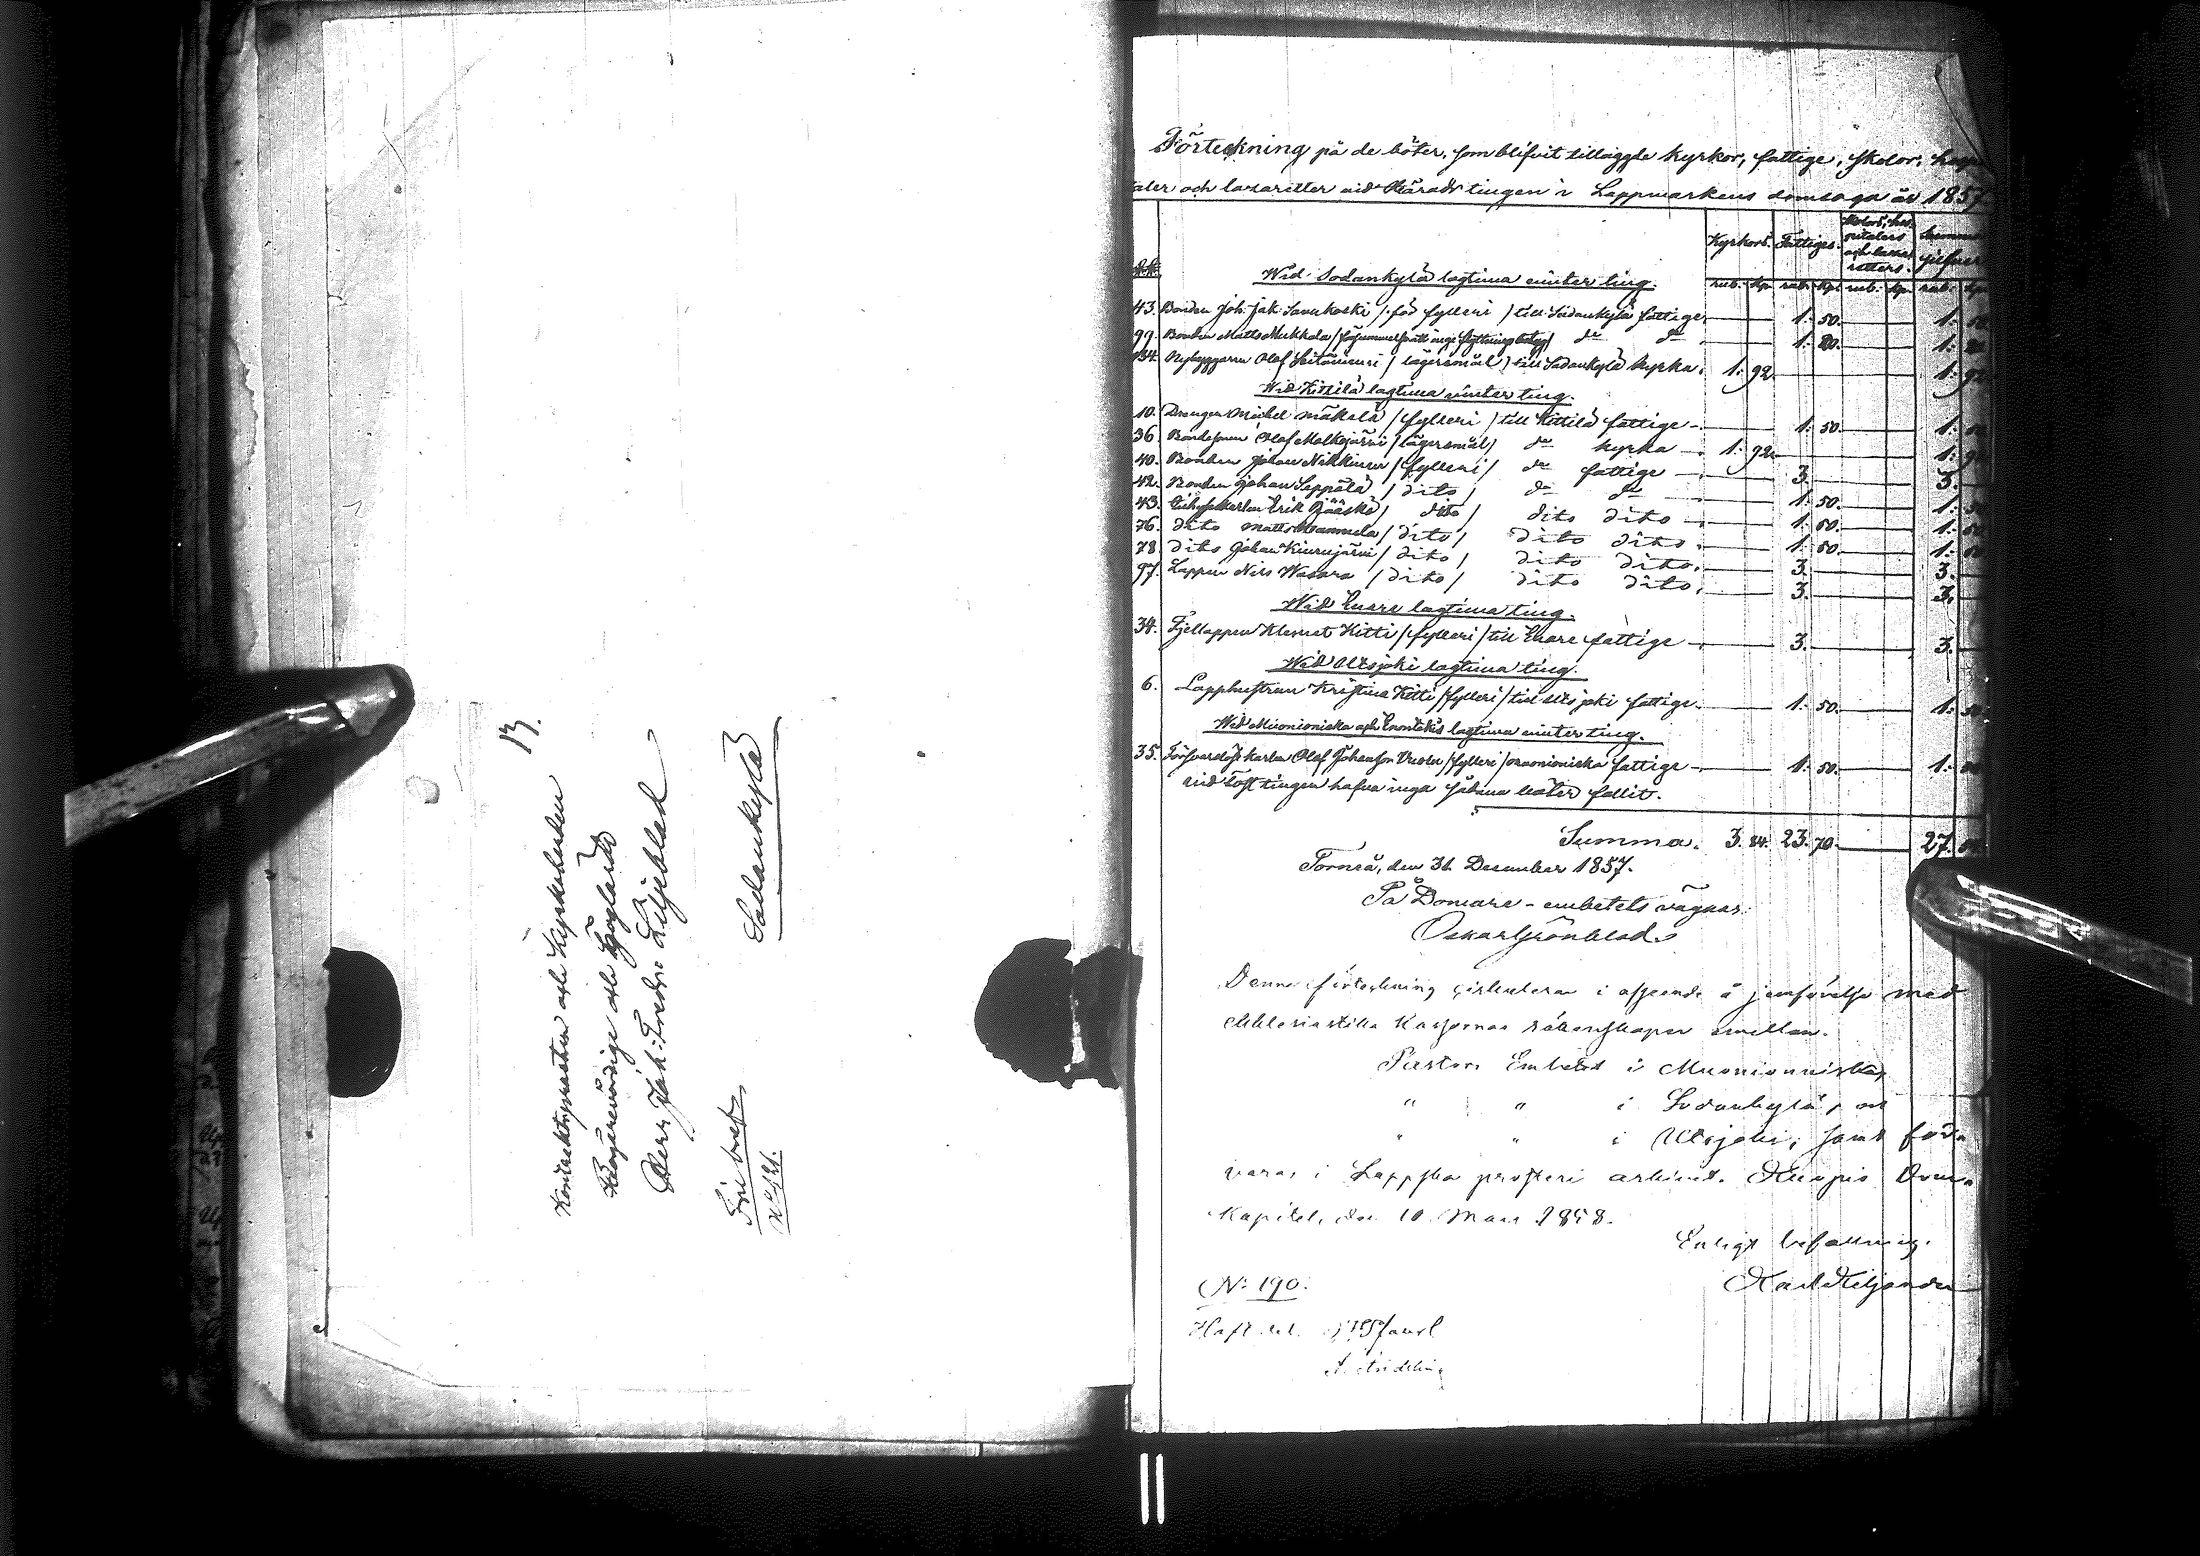 B.
Kontraktsprosten och Kyrkoherden
Högärevördige och Höglärde
Herr Joh: Fredr: Liljeblad
Sodankylä
Fribref
Förteckning på de böter, som blifvit tillaggde kyrkor, fattige, skolor, hosp
taler och lasaretter vid Häradstingen i Lappmarkens domsaga år 1857
Kyrkors. Fattiges. Skolors, hos-
pitalers
och lasa-
retters. Summa
silfver
Wid Sodankylä lagtima vinter ting. rub. kp. rub. kp. rub. kp. rub. kp.
43. Bonden Joh. Jak. Savukoski / för fylleri / till Sodankylä fattige. 1. 50. 1.
99. Bonden Matts Mukkala / do do 1. 20. 1.
134. Nybyggaren Olof / lägersmål / till Sodankylä kyrka. 1. 92. 1. 92
Wid Kittilä lagtima vinter ting.
10. Drengen Michel Mäkelä / fylleri / till Kittilä fattige 1. 50. 1.
36. Bondesonen Olof Molkojärvi / lägersmål / do kyrka 1. 92. 1.
40. Bonden Johan Nikkinen / fylleri / do fattige 3. 3.
42. Bonden Johan Seppälä / dito / do do 1. 50. 1.
43. Erik Pääskö / dito / dito dito 1. 50. 1.
76. dito Matts / dito / dito dito. 1. 50. 1.
78. dito Johan Kinnujärvi / dito / dito dito. 3. 3.
97. Lappen Nils Wasara / dito / dito dito. 3. 3.
Wid Enare lagtima ting.
34. Fjellappen Klemet Kitti / fylleri / till Enare fattige 3. 3.
Wid Utsjoki lagtima ting.
6. Lapphustrun Kristina Kitti / fylleri / till Utsjoki fattige. 1. 50. 1.
Wid Muonioniska och Enontekis lagtima vinter ting.
35. Försvarslöse karlen Olof Johansson / fylleri / Muonioniska fattige 1. 50. 1.
vid höst tingen hafva inga sådana böter fallit.
Summa. 3. 84. 23. 70. 27.
Torneå, den 31 December 1857.
På Domare-embetets vägnar:
Oskar Grönblad.
Denna förteckning cirkulerar i afseende å jemförelse med
ekklesiastika Kassornas räkenskaper emellan.
Pastors Embetet i Muonionniska,
" " i Sodankylä, och
" " i Utsjoki, samt förva-
varas i Lappska prosteri arkivet. Kuopio Dom-
kapitel, den 10 Mars 1858.
Enligt befallning.
Karl Kiljander
N: 190.